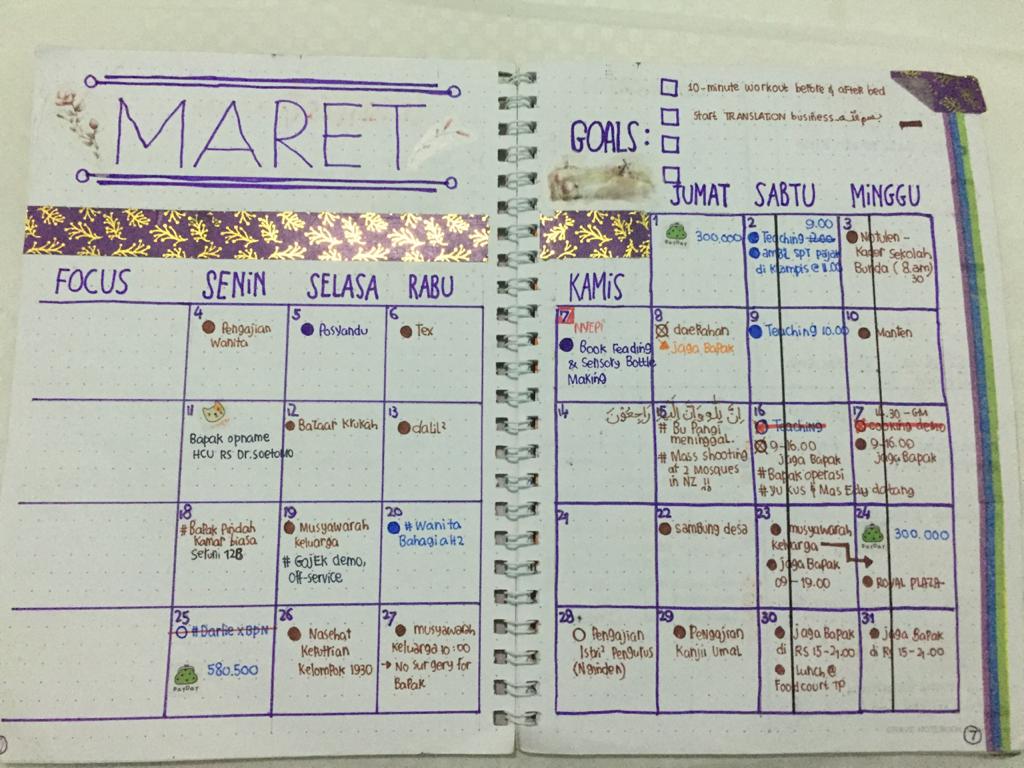 MARET
FOCUS
SENIN
SELASA
RABU
4
Pengajian
Wanita
5
Posyandu
6
Tex
11
Bapak opname
HCU RS Dr. Soetomo
12
Bazaar Krukah
13
dalil²
18
#Bapak Pindah
Kamar biasa
Seruni 12B
19
Musyawarah
keluarga
# GojEk demo,
off-service
20
# Wanita
Bahagia H2
25
#Darlie x BPN
PAYDAY
580.500
26
Nasehat
Keputrian
Kelompok 1930
27
musyawarah
Keluarga 10:00
→ No surgery for
Bapak
GOALS:
10-minute workout before & after bed
Start TRANSLATION business
KAMIS
JUMAT
SABTU
MINGGU
1
PAYDAY
300,000
2
9.00
Teaching 12.00
ambil SPT pajak
di Klampis @ 11.00
3
Notulen -
Kober Sekolah
Bunda (8.30 am)
7
NYEPI
Book Reading
& Sensory Bottle
Making
8
daerahan
jaga Bapak
9
Teaching 10.00
10
Manten
14
15
إِنَّا لِلّهِ وَإِنَّـا إِلَيْهِ رَاجِعُونَ
# Bu Pangi
meninggal.
# Mass shooting
at 2 Mosques
in NZ !!
16
Teaching
9-16.00
jaga Bapak
#Bapak operasi
# Yu Kus & Mas Edy datang
17
14.30 - GM
cooking demo
9-16.00
jaga Bapak
21
22
sambung desa
23
musyawarah
Keluarga
jaga Bapak
09 - 19.00
24
PAYDAY
300.000
ROYAL PLAZA
28
Pengajian
Istri² Pengurus
(Nginden)
29
Pengajian
Kanjii Umal
30
jaga Bapak
di RS 15-21.00
Lunch @
Foodcourt TP
31
jaga Bapak
di RS 15-21.00
7